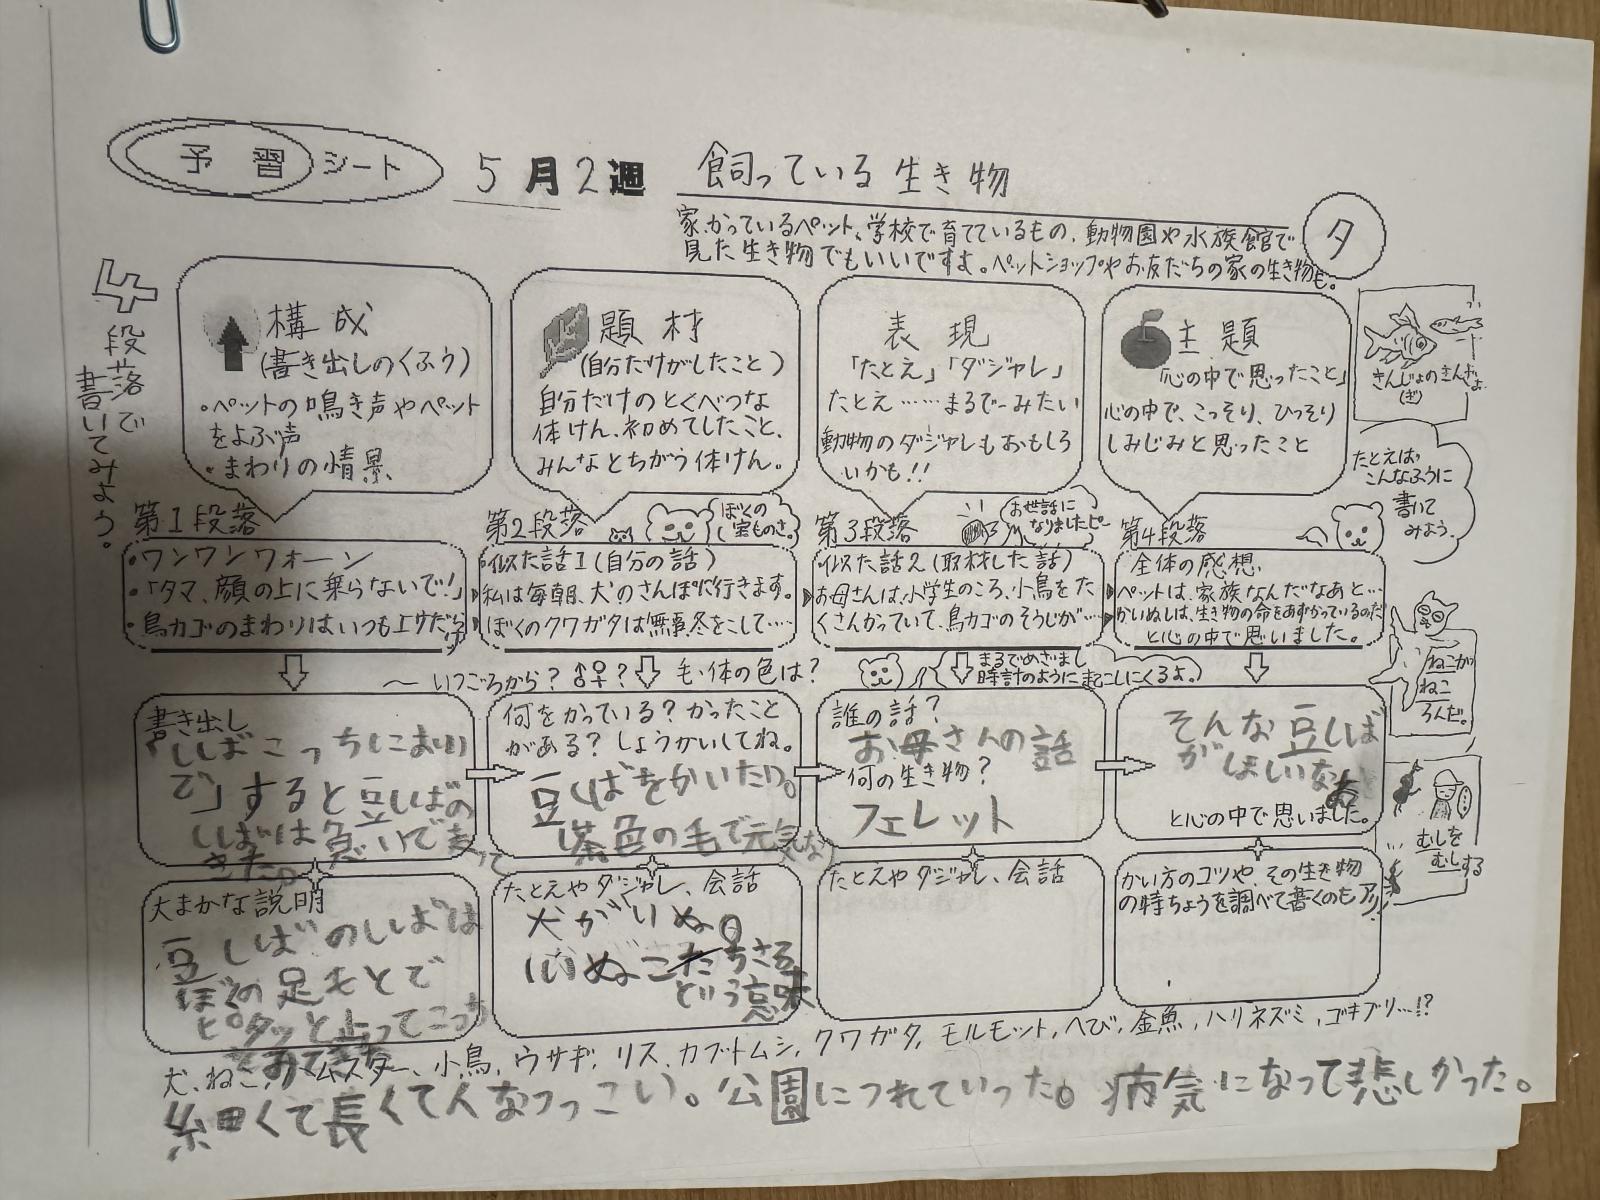 予習シート
5月2週
飼っている生き物
家.かっているペット、学校で育てているもの、動物園や水族館で
見た生き物でもいいですよ。ペットショップやお友だちの家の生き物も。
タ
4段落で
書いてみよう。
構成
(書き出しのくふう)
・ペットの鳴き声やペット
をよぶ声
・まわりの情景
題材
(自分だけがしたこと)
自分だけのとくべつな
体けん、初めてしたこと、
みんなとちがう体けん。
表現
「たとえ」「ダジャレ」
たとえ……まるで〜みたい
動物のダジャレもおもしろ
いかも!!
主題
「心の中で思ったこと」
心の中で、こっそり、ひっそり
しみじみと思ったこと
きんじょのきんだよ
(ぎ)
たとえば、
こんなふうに
書いて
みよう。
第1段落
・ワンワンウォーン
・「タマ、顔の上に乗らないで!」
・鳥カゴのまわりはいつもエサだらけ
第2段落
ぼくの
宝ものさ。
・似た話1(自分の話)
私は毎朝、犬のさんぽに行きます。
ぼくのクワガタは無事冬をこして……
第3段落
お世話に
なりましたピー
・似た話2(取材した話)
お母さんは、小学生のころ、小鳥をた
くさんかっていて、鳥カゴのそうじが…
第4段落
全体の感想
ペットは、家族なんだなあと…
かいぬしは、生き物の命をあずかっているのだ
と心の中で思いました。
〜いつごろから?♂♀?
毛・体の色は?
まるでめざまし
時計のようにまいにくるよ。
ねこが
ねこ
ろんだ。
むしを
むしする
書き出し
「しばこっちにおい
で」すると豆しばの
しばは急いで走って
きた。
何をかっている?かったこと
がある?しょうかいしてね。
豆しばをかいたい。
茶色の毛で元気な
誰の話?
お母さんの話
何の生き物?
フェレット
そんな豆しば
がほしいなあ
と心の中で思いました。
大まかな説明
豆しばのしばは
ぼくの足もとで
ピタッと止ってこっち
たとえやダジャレ、会話
犬がいぬ。
いぬこ
ちさる
という意味
たとえやダジャレ、会話
かい方のコツや、その生き物
の特ちょうを調べて書くのもアリ!
犬、ねこ、ハムスター、小鳥、ウサギ、リス、カブトムシ、クワガタ、モルモット、へび、金魚、ハリネズミ、ゴキブリ…!?
細くて長くて人なつっこい。公園につれていった。病気になって悲しかった。